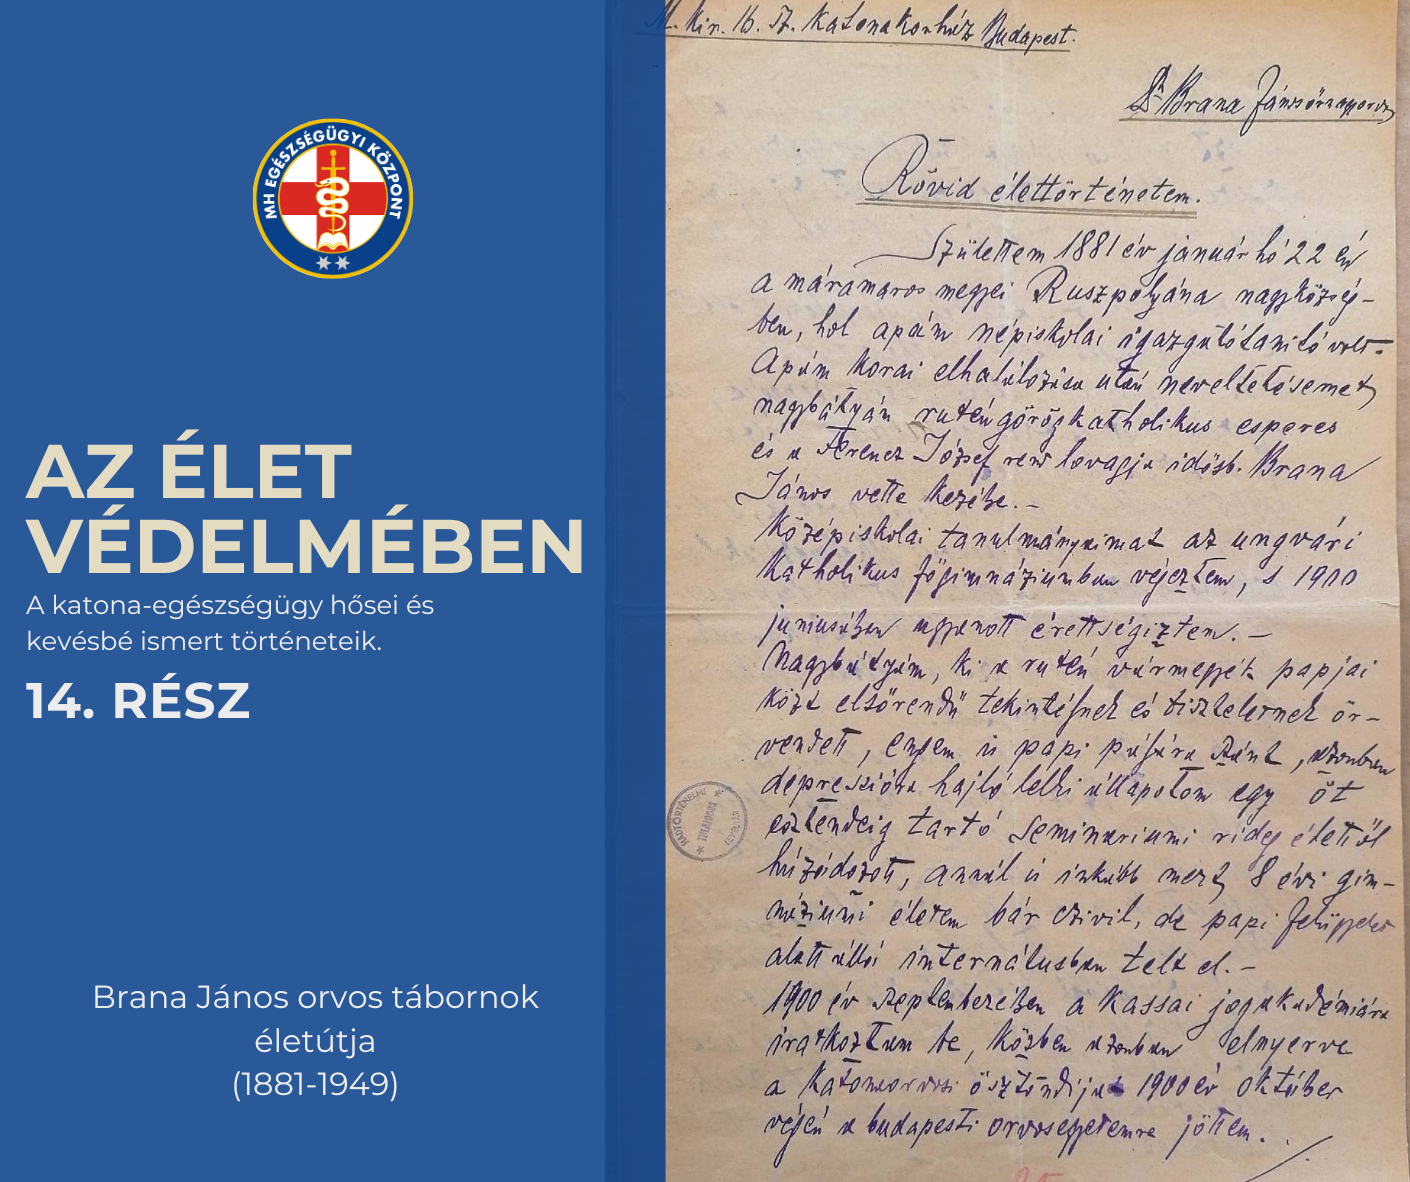 MH EGÉSZSÉGÜGYI KÖZPONT
AZ ÉLET
VÉDELMÉBEN
A katona-egészségügy hősei és
kevésbé ismert történeteik.
14. RÉSZ
Brana János orvos tábornok
életútja
(1881-1949)
M. kir. 16. sz. katona korház Budapest.
Dr Brana János őrnagyorvos
Rövid élettörténetem.
Születtem 1881 év január hó 22 én
a máramaros megyei Ruszpolyána nagyközség-
ben, hol apám népiskolai igazgatótanitó volt.
Apám korai elhalálozása után neveltetésemet
nagybátyám rutén görögkatholikus esperes
és a Ferencz József rend lovagja idősb. Brana
János vette kezébe.-
Középiskolai tanulmányaimat az ungvári
katholikus főgimnáziumban végeztem, s 1900
juniusában ugyanott érettségiztem.-
Nagybátyám, ki a rutén vármegyék papjai
közt elsőrendű tekintélynek és tiszteletnek ör-
vendett, engem is papi pályára szánt, azonban
depresszióra hajló lelki állapotom egy öt
esztendeig tartó seminariumi rideg élettől
húzódozott, annál is inkább mert 8 évi gim-
náziumi életem bár czivil, de papi felügyelet
alatt álló internátusban telt el.-
1900 év szeptemberében a kassai jogakadémiára
iratkoztam be, közben azonban elnyerve
a katonaorvosi ösztöndíjat 1900 év október
végén a budapesti orvosegyetemre jöttem.
HADTÖRTÉNELMI
TULAJDONA